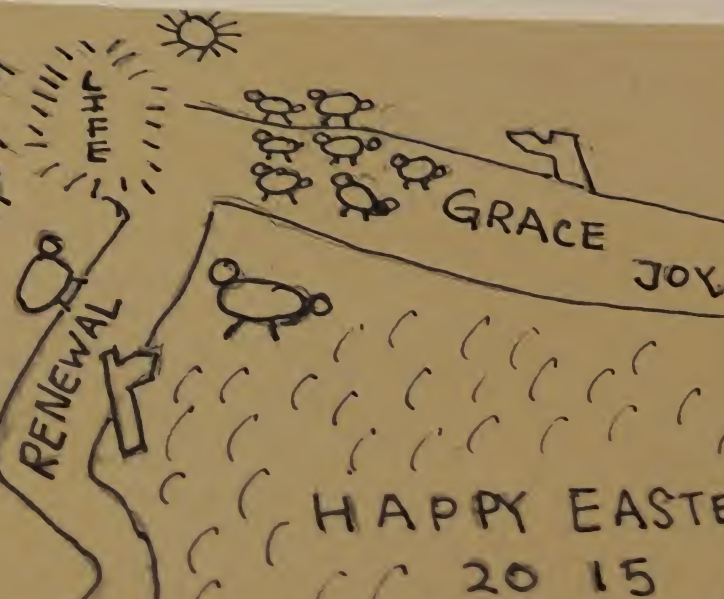 LIFE
GRACE
JOY
RENEWAL
HAPPY EASTE
2015